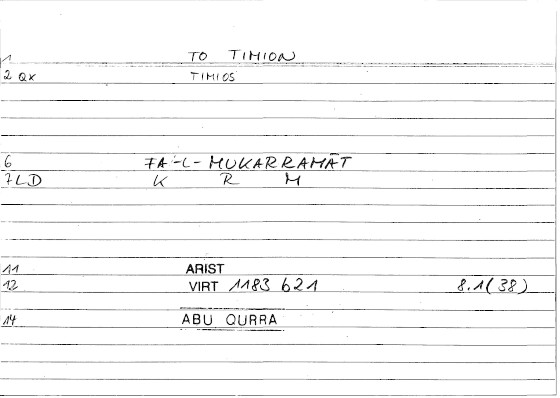 1 TO TIMION
2 QX TIMIOS
6 FA-L-MUKARRAMĀT
7LD K R M
11 ARIST
12 VIRT 1183 b21 8.1(38)
14 ABU QURRA